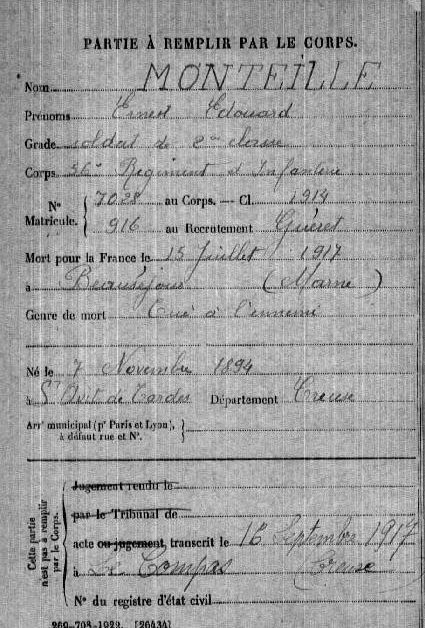 PARTIE À REMPLIR PAR LE CORPS.
Nom MONTEILLE
Prénoms Ernest Edouard
Grade soldat de 2me classe
Corps Regiment d'Infanterie
N° Matricule. { 7028 au Corps. — Cl. 1914
916 au Recrutement Guéret
Mort pour la France le 15 Juillet 1917
à Beauséjour (Marne)
Genre de mort Tué à l'ennemi
Né le 7 Novembre 1894
à St Avit de Tardes Département Creuse
Arrt municipal (pr Paris et Lyon),
à défaut rue et N°.
Cette partie n'est pas à remplir par le Corps.
Jugement rendu le
par le Tribunal de
acte ou jugement transcrit le 16 Septembre 1917
à Le Compas Creuse
N° du registre d'état civil
269-708-1922. [26434]